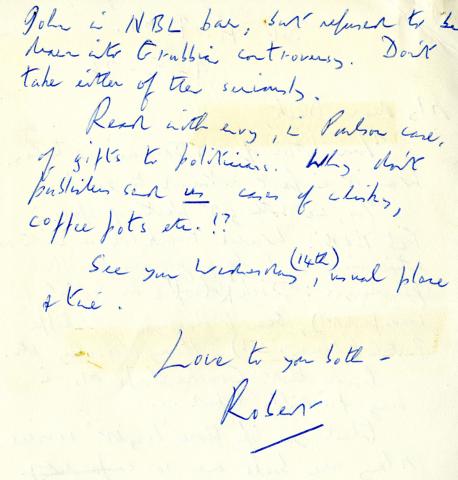 John in NBL bar, but refused to be
drawn into Grubbia controversy. Don't
take either of them seriously.
Read with envy, in Poulson case,
of gifts to politicians. Why don't
publishers send us cases of whisky,
coffee pots etc. !?
See you Wednesday (14th), usual place
& time.
Love to you both –
Robert